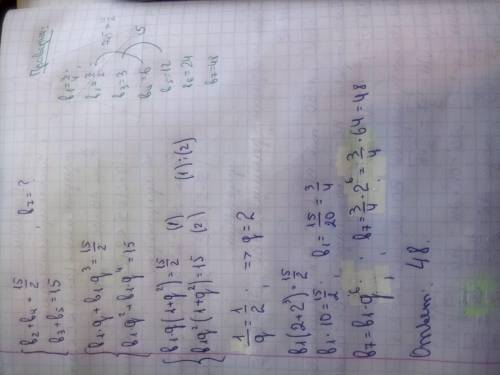 { b₂ + b₄ = 15/2
b₃ + b₅ = 15 , b₇ = ?
{ b₁·q + b₁·q³ = 15/2
b₁·q² + b₁·q⁴ = 15
{ b₁·q(1+q²) = 15/2 (1)
b₁q²(1+q²) = 15 (2) (1):(2)
1/q = 1/2 ; => q = 2
b₁(2+2³) = 15/2
b₁·10 = 15/2 , b₁ = 15/20 = 3/4
b₇ = b₁·q⁶ ; b₇ = 3/4·2⁶ = 3/4·64 = 48
Ответ: 48.
Проверка:
b₁ = 3/4 ;
b₂ = 3/2
b₃ = 3
b₄ = 6
b₅ = 12
b₆ = 24
b₇ = 48
7,5 = 15/2
15